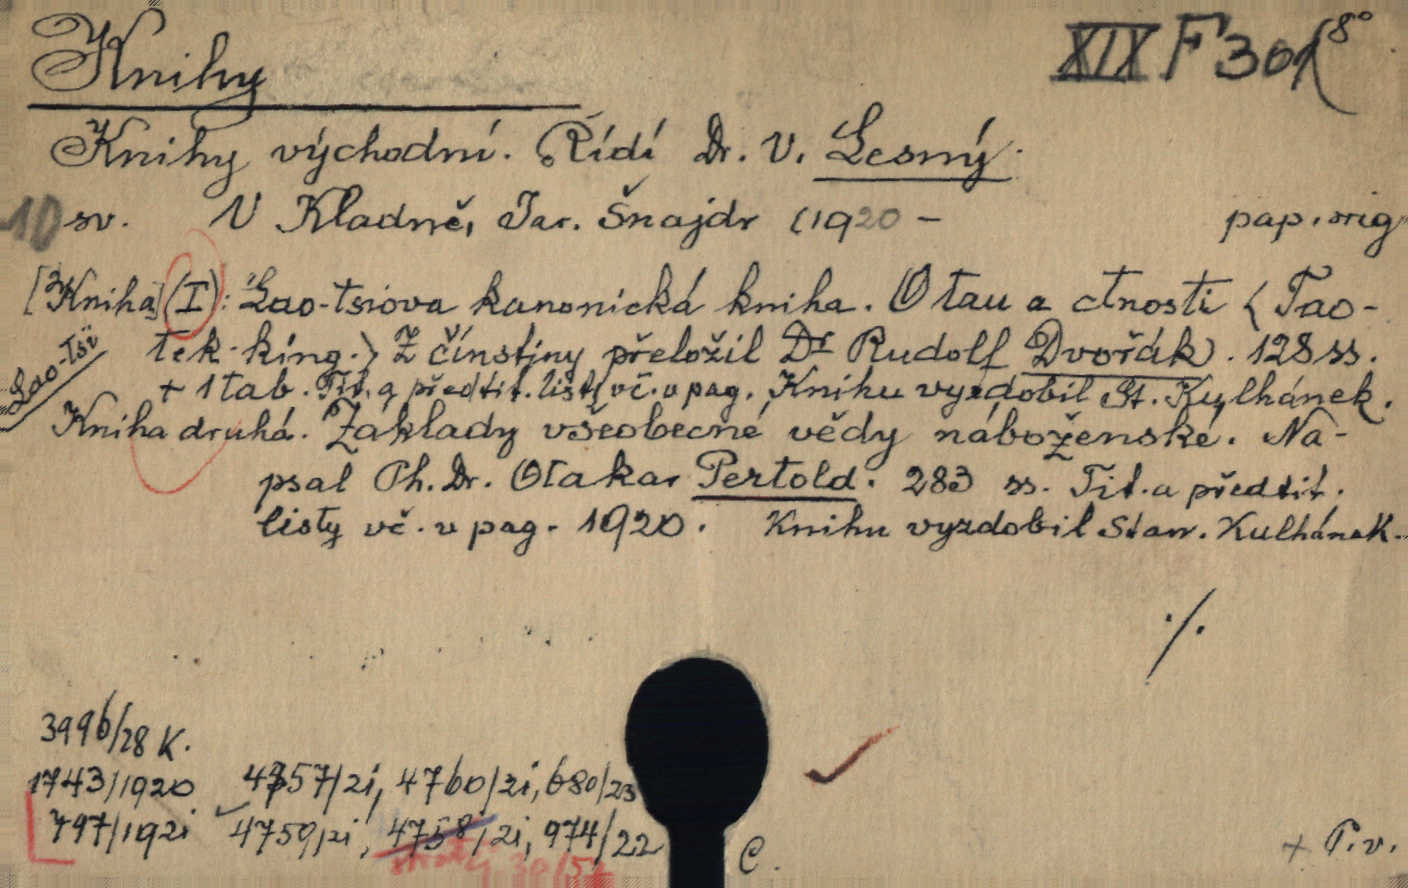 Knihy
XIX F 301 8°
Knihy východní. Řídí Dr. V. Lesný.
10 sv. V Kladně, Jar. Šnajdr (1920 – pap. orig
[Kniha] (I): Lao-tsiova kanonická kniha. O tau a ctnosti (Tao-
Lao-tsï
tek-king.) Z čínštiny přeložil Dr Rudolf Dvořák. 128 ss.
+ 1 tab. Tit. a předtit. listy vč. v pag. Knihu vyzdobil St. Kulhánek.
Kniha druhá. Základy všeobecné vědy náboženské. Na-
psal Ph. Dr. Otakar Pertold. 283 ss. Tit. a předtit.
listy vč. v pag. 1920. Knihu vyzdobil Stan. Kulhánek.
./.
3996/28 K.
1743/1920 4757/21, 4760/21, 680/23
797/1921 4759/21, 4758/21, 974/22 C.
+ P.v.